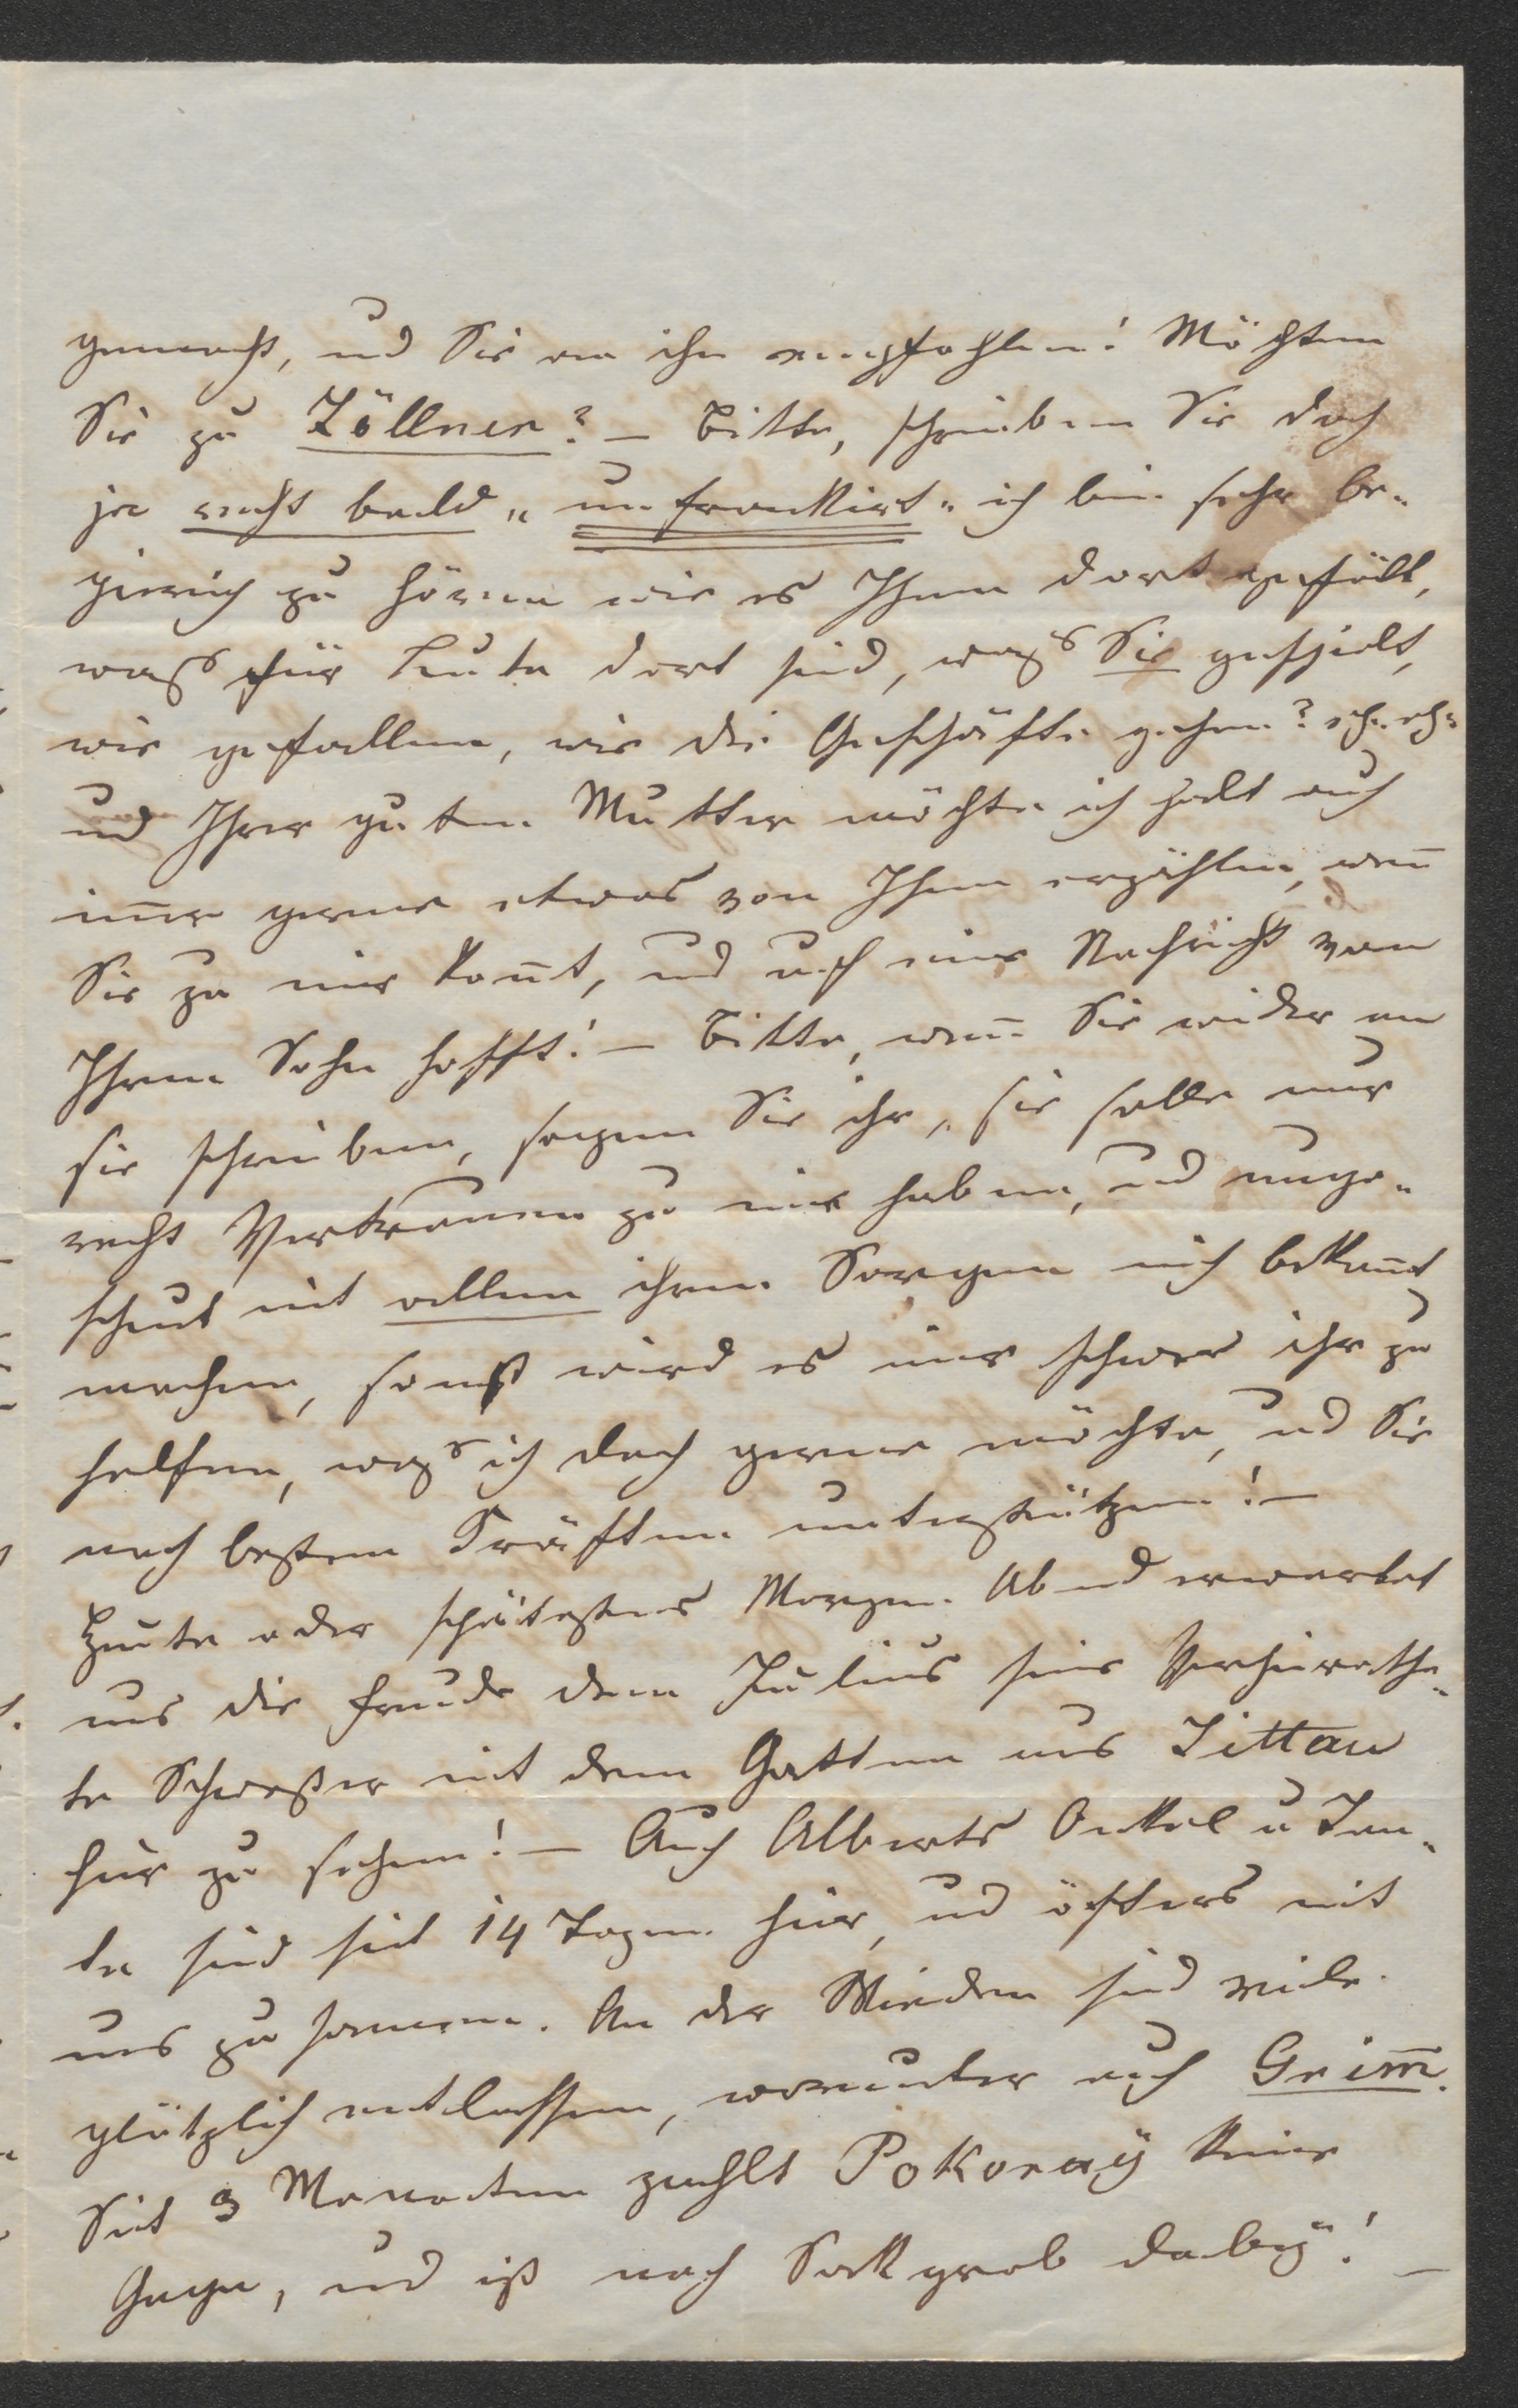 gemacht, und Sie an ihn empfohlen! Möchten
Sie zu Zöllner? – Bitte, schreiben Sie doch
ja recht bald „unfrankirt" ich bin sehr be-
gierich zu hören wie es Ihnen dort gefällt,
waß für Leute dort sind, waß Sie gespielt,
wie gefallen, wie die Geschäfte gehen? etc. etc.
und Ihrer guten Mutter möchte ich halt auch
im̅er gerne etwas von Ihnen erzählen, wen̅
Sie zu mir kom̅t, und auf eine Nachricht von
Ihrem Sohn hofft! – Bitte, wen̅ Sie wieder an
sie schreiben, sagen Sie ihr, sie solle nur
recht Vertrauen zu mir haben, und unge-
scheut mit allen ihren Sorgen mich bekan̅t
machen, sonst wird es mir schwer ihr zu
helfen, waß ich doch gerne möchte, und Sie
nach besten Kräften unterstützen! –
Heute oder spätestens Morgen Abend erwartet
uns die Freude dem Julius seine Verheirathe-
te Schwester mit dem Gatten aus Zittau
hier zu sehen! – Auch Alberts Onkel u Tan-
te sind seit 14 Tagen hier, und öfters mit
uns zusamen. An der Wieden sind viele
plötzlich entlassen, worunter auch Grim̅.
Seit 3 Monaten zahlt Pokorny keine
Gage, und ist noch Sackgrob dabey! –